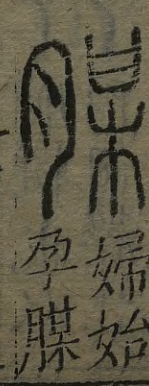 腜
婦始
孕腜